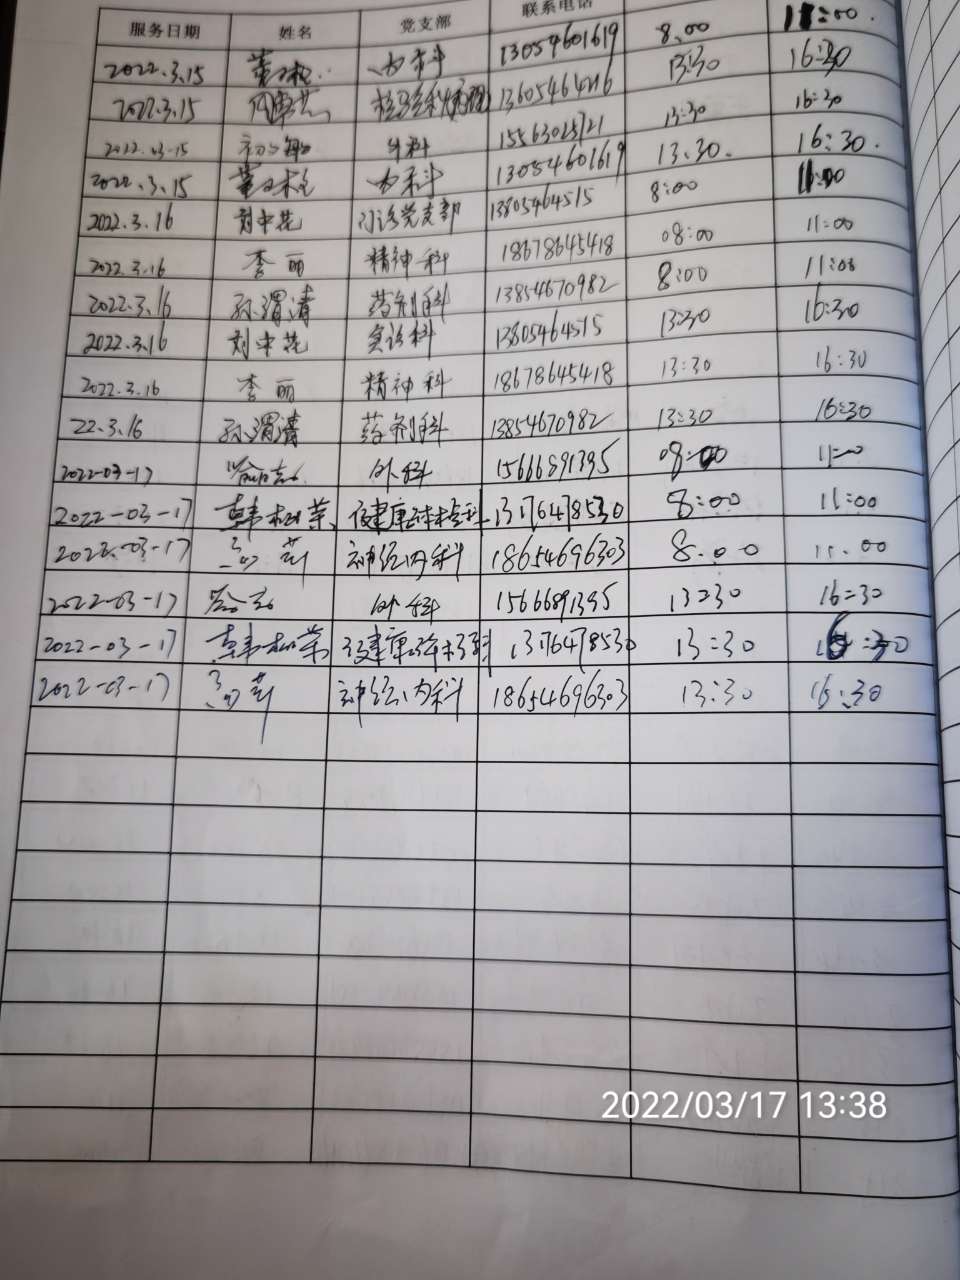 服务日期 姓名 党支部 联系电话
2022.3.15 内科 13054601619 8:00 11:00
2022.3.15 13605464216 13:30 16:30
2022.03-15 外科 15563025721 13:30 16:30
2022.3.15 内科 13054601619 13:30 16:30
2022.3.16 刘中花 门诊党支部 13805464515 8:00 11:00
2022.3.16 李丽 精神科 18678645418 08:00 11:00
2022.3.16 孙渭清 药剂科 13854670982 8:00 11:00
2022.3.16 刘中花 13805464515 13:30 16:30
2022.3.16 李丽 精神科 18678645418 13:30 16:30
22.3.16 孙渭清 药剂科 13854670982 13:30 16:30
2022-03-17 外科 15666891395 08:00 11:00
2022-03-17 13176478530 8:00 11:00
2022-03-17 神经内科 18654696303 8:00 11:00
2022-03-17 外科 15666891395 13:30 16:30
2022-03-17 13176478530 13:30 16:30
2022-03-17 神经内科 18654696303 13:30 16:30
2022/03/17 13:38